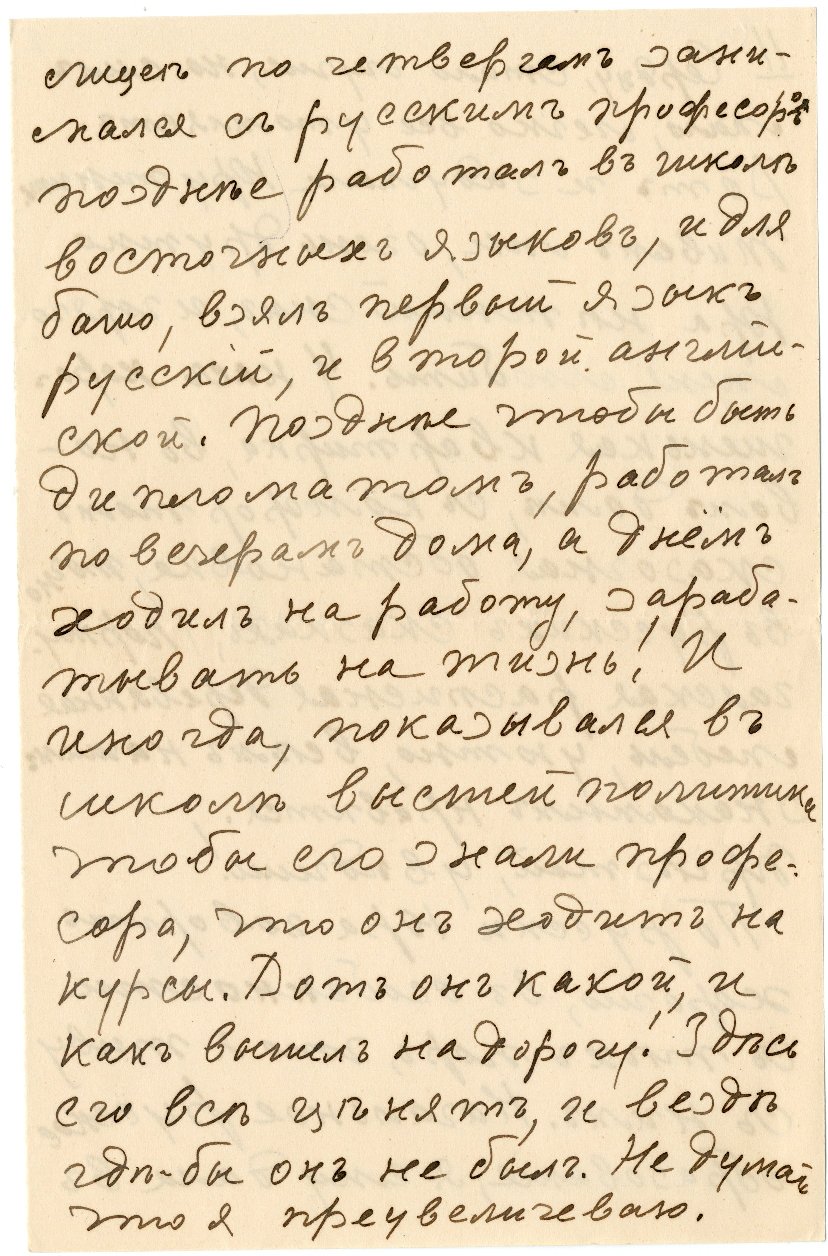 лицеѣ по четвергамъ зани-
мался съ русскимъ професоромъ
позднѣе работалъ въ школѣ
восточныхъ языковъ, и для
башо, взялъ первый языкъ
русскій, и второй англій-
ской. Позднѣе чтобы быть
дипломатомъ, работалъ
по вечерамъ дома, а днёмъ
ходилъ на работу, зараба-
тывать на жизнь! И
иногда, показывался въ
школѣ высшей политики
чтобы его знали профе-
сора, что онъ ходитъ на
курсы. Вотъ онъ какой, и
какъ вышелъ на дорогу! Здѣсь
его всѣ цѣнятъ, и вездѣ
гдѣ-бы онъ не былъ. Не думай
что я преувеличеваю.